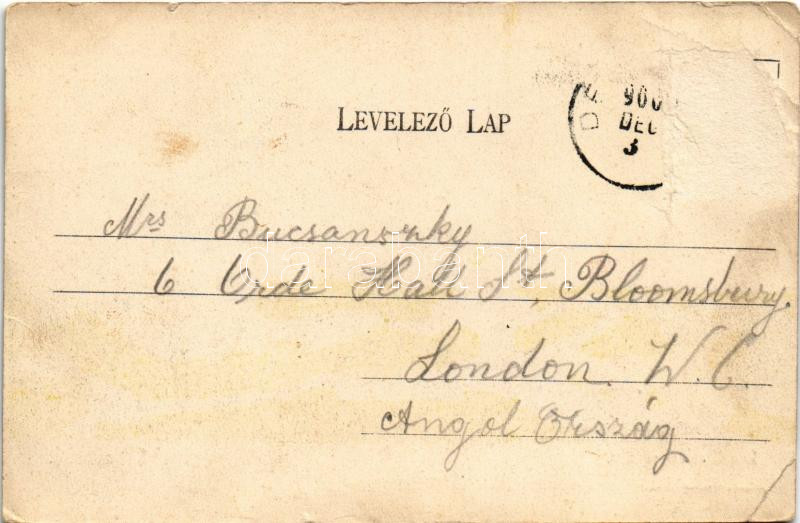 LEVELEZŐ LAP
900
DEC
3
Mrs Bucsanszky
6 Orde Hall St, Bloomsbury.
London. W. C.
Angol Ország
darabanth